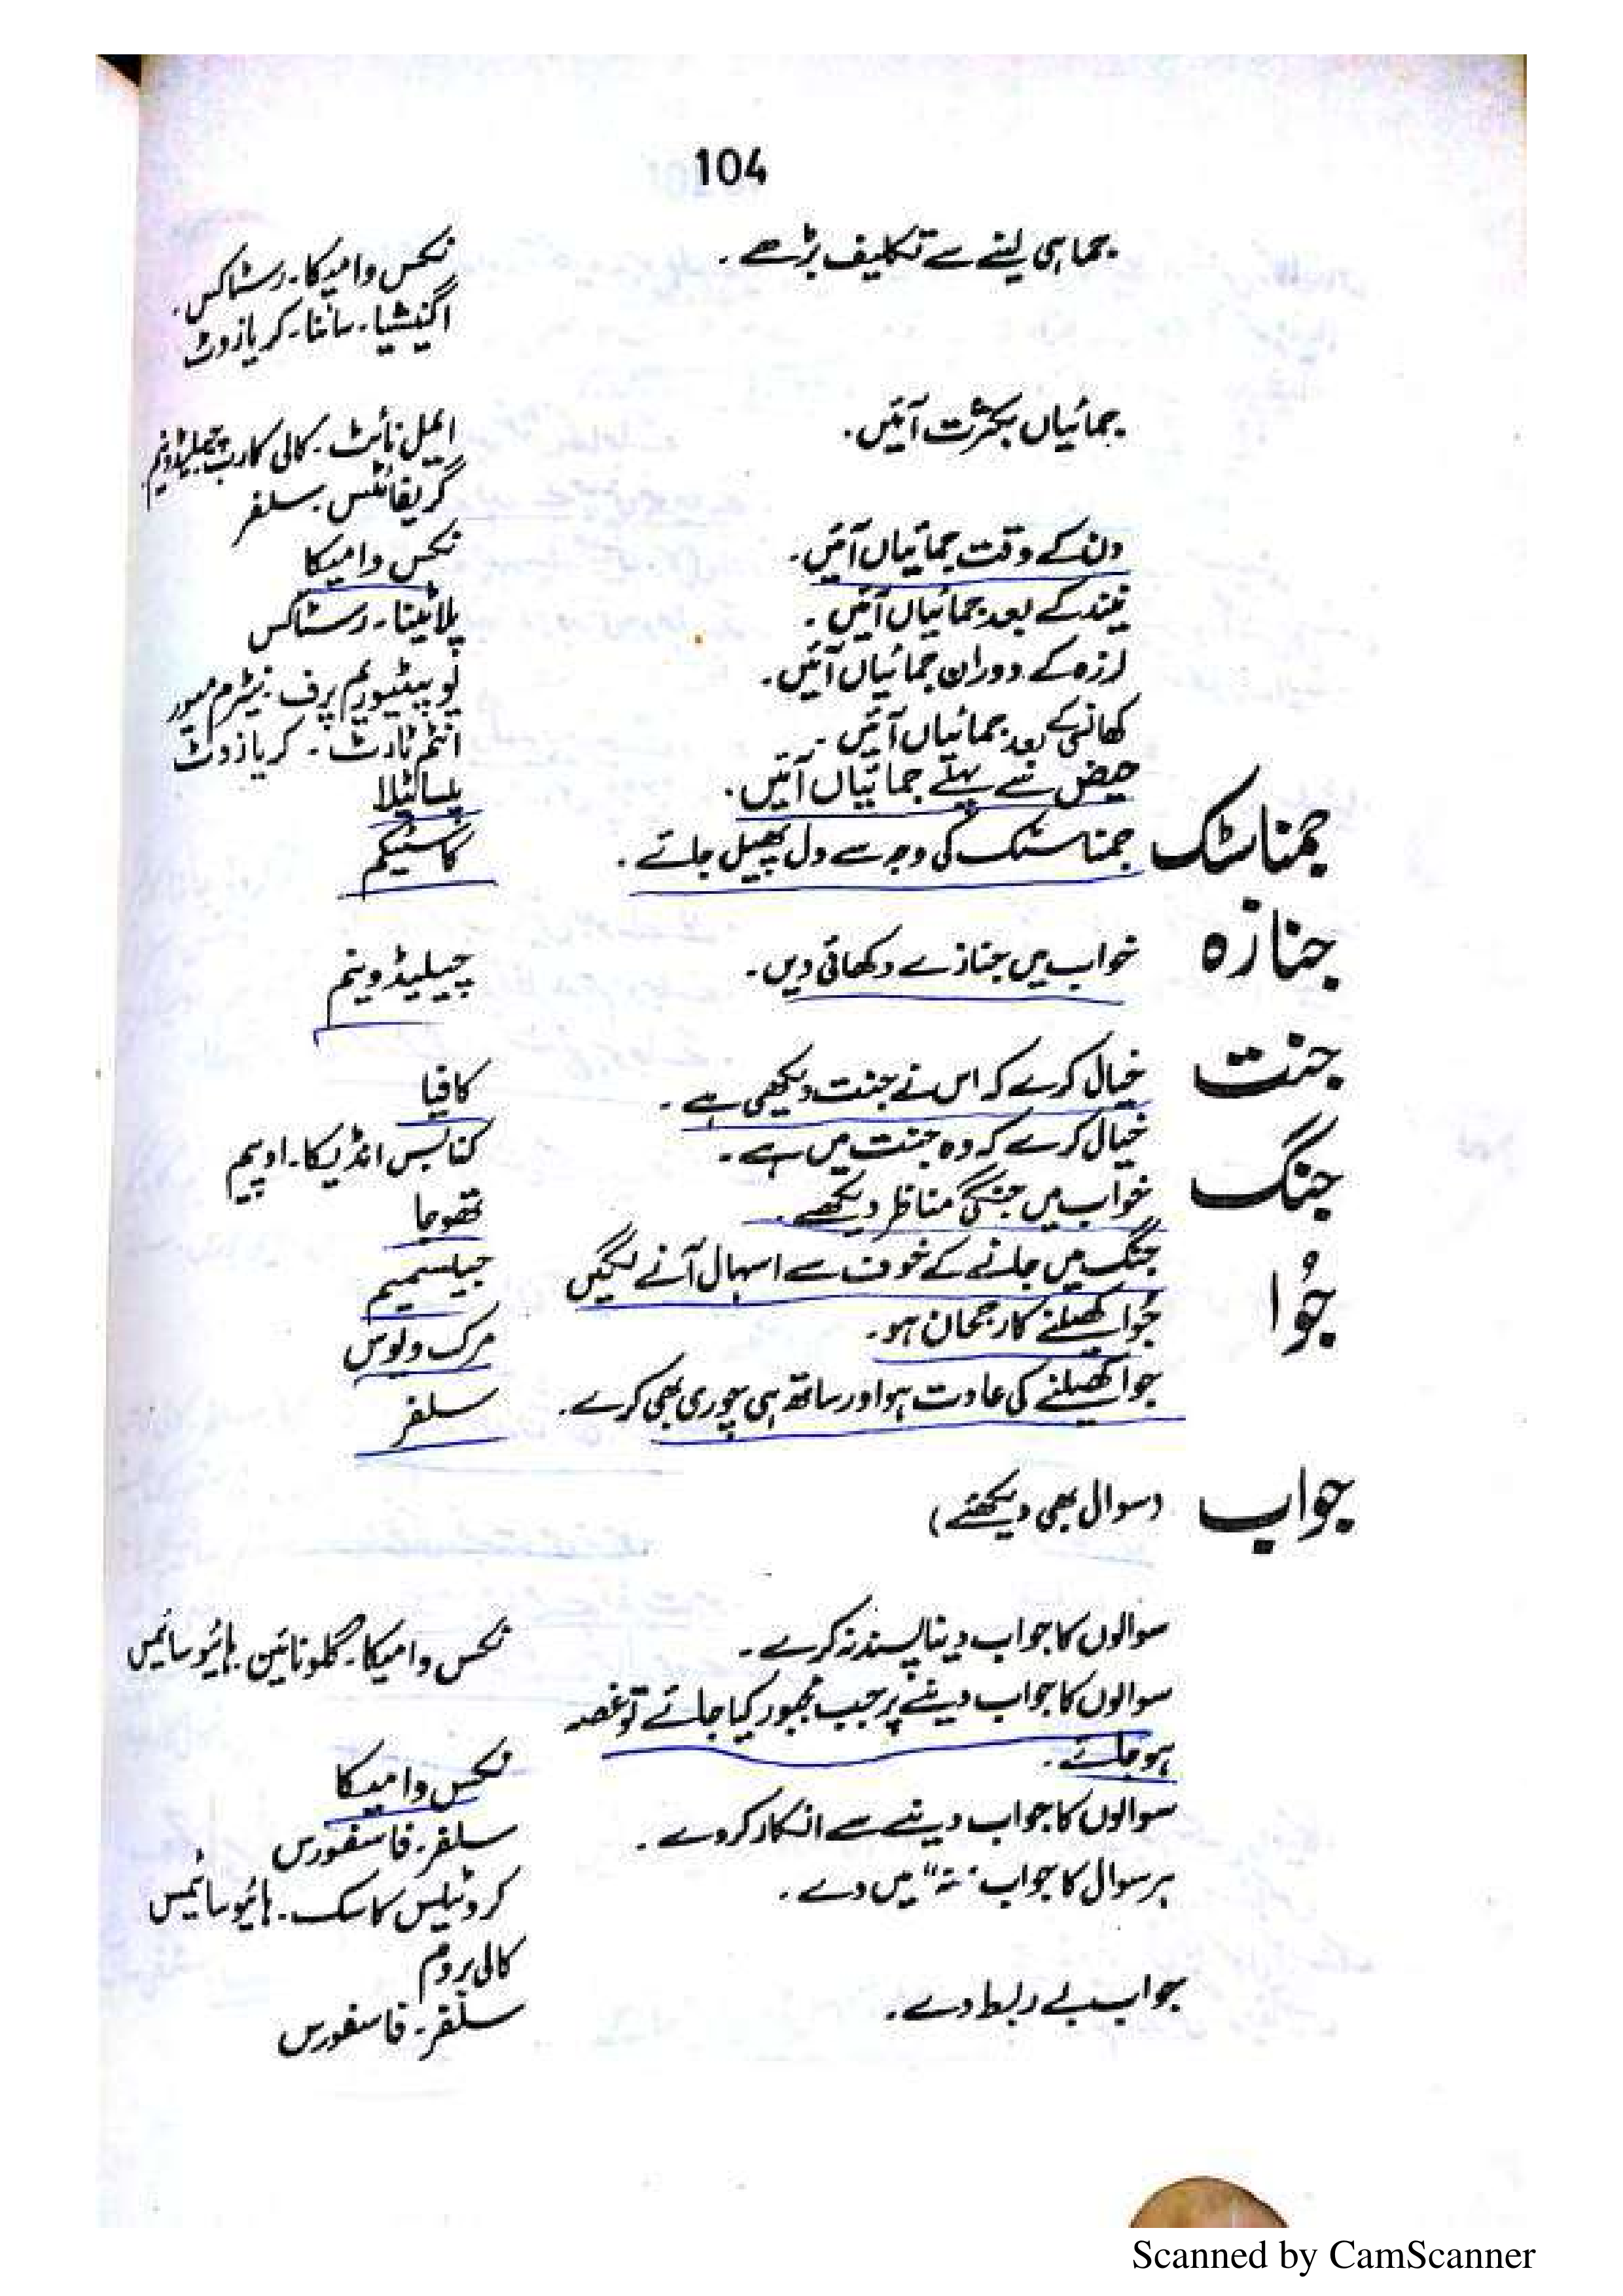 104
جماہی لینے سے تکلیف بڑھے ۔ نکس وامیکا ۔ رسٹاکس ۔
اگنیشیا ۔ سائنا ۔ کریازوٹ
جمائیاں بکثرت آئیں ۔ ایمل نائٹ ۔ کالی کارب چیلیڈونیم
گریفائٹس ۔ سلفر
دن کے وقت جمائیاں آئیں ۔ نکس وامیکا
نیند کے بعد جمائیاں آئیں ۔ پلاٹینا ۔ رسٹاکس
لرزہ کے دوران جمائیاں آئیں ۔ یوپیٹیوریم پرف ۔ نیٹرم میور
کھانیکے بعد جمائیاں آئیں ۔ انٹم ٹارٹ ۔ کریازوٹ
حیض سے پہلے جمائیاں آئیں ۔ پلساٹیلا
جمناسٹک جمناسٹک کی وجہ سے دل پھیل جائے ۔ کاسٹیکم
جنازہ خواب میں جنازے دکھائی دیں ۔ چیلیڈونیم
جنت خیال کرے کہ اس نے جنت دیکھی ہے ۔ کافیا
خیال کرے کہ وہ جنت میں ہے ۔ کنابس انڈیکا ۔ اوپیم
جنگ خواب میں جنگی مناظر دیکھے ۔ تھوجا
جنگ میں جانے کے خوف سے اسہال آنے لگیں جیلسمیم
جُوا جُوا کھیلنے کا رجحان ہو ۔ مرک ولوس
جوا کھیلنے کی عادت ہو اور ساتھ ہی چوری بھی کرے ۔ سلفر
جواب (سوال بھی دیکھئے)
سوالوں کا جواب دینا پسند نہ کرے ۔ نکس وامیکا ۔ گلونائین ۔ ہائیوسائمس
سوالوں کا جواب دینے پر جب مجبور کیا جائے تو غصہ
ہو جائے ۔ نکس وامیکا
سوالوں کا جواب دینے سے انکار کر دے ۔ سلفر ۔ فاسفورس
ہر سوال کا جواب "نہ" میں دے ۔ کروٹیلس کاسک ۔ ہائیوسائمس
کالی بروم
جواب بے ربط دے ۔ سلفر ۔ فاسفورس
Scanned by CamScanner